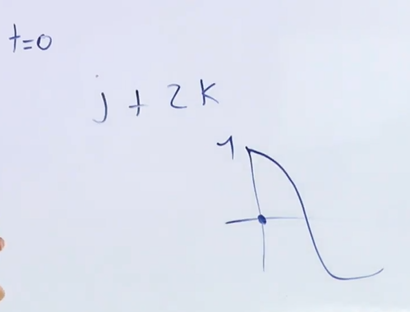 t=0
j + 2k
1